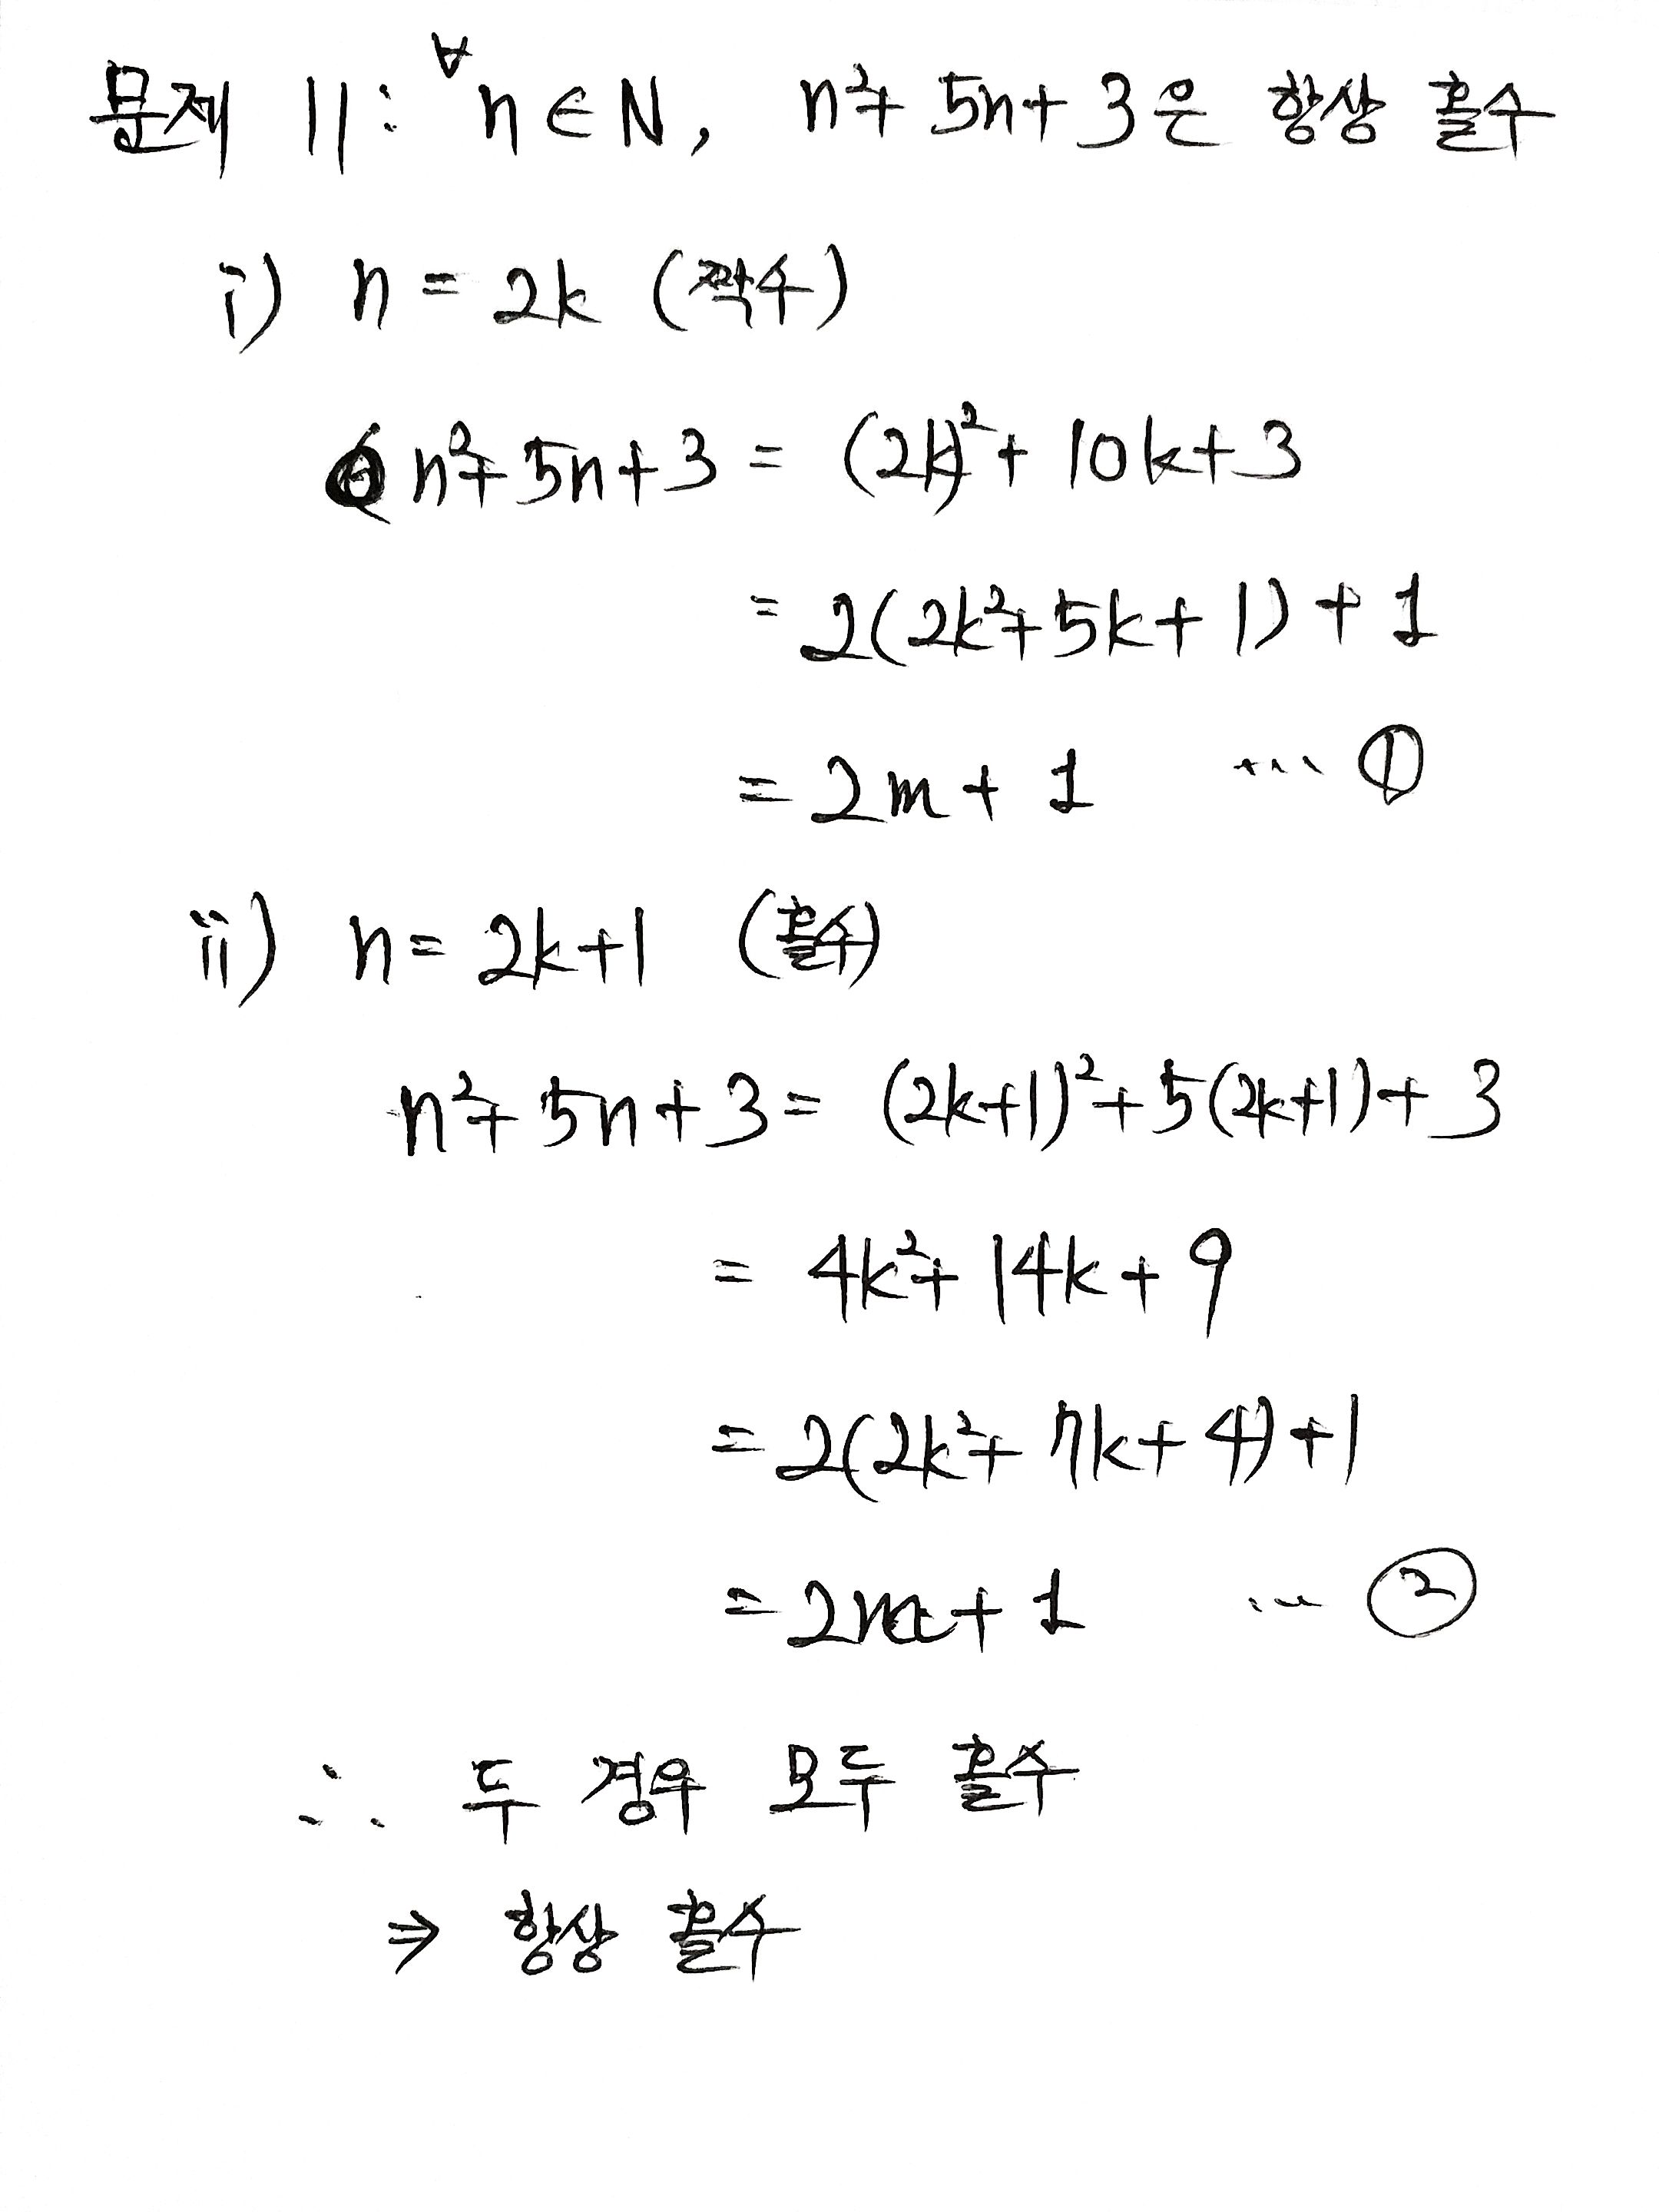 문제 11: ∀n∈N, n²+5n+3은 항상 홀수
i) n = 2k (짝수)
n²+5n+3 = (2k)²+10k+3
= 2(2k²+5k+1)+1
= 2m+1 … ①
ii) n = 2k+1 (홀수)
n²+5n+3 = (2k+1)²+5(2k+1)+3
= 4k²+14k+9
= 2(2k²+7k+4)+1
= 2m+1 … ②
∴ 두 경우 모두 홀수
⇒ 항상 홀수